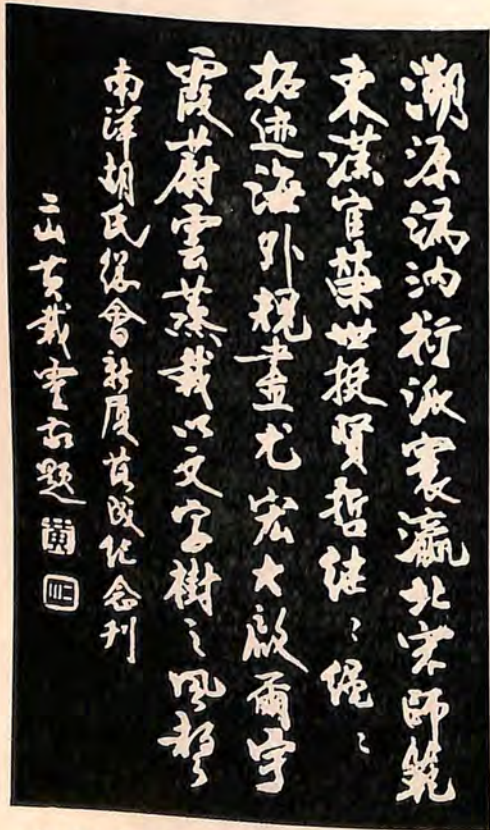 溯源溈汭衍派寰瀛北宋師範
東漢官榮世挺賢哲继〻绳〻
拓迹海外規畫尤宏大啟爾宇
霞蔚雲蒸載以文字樹之風聲
南洋胡氏總會新厦落成纪念刊
三山黄載靈敬題
黄